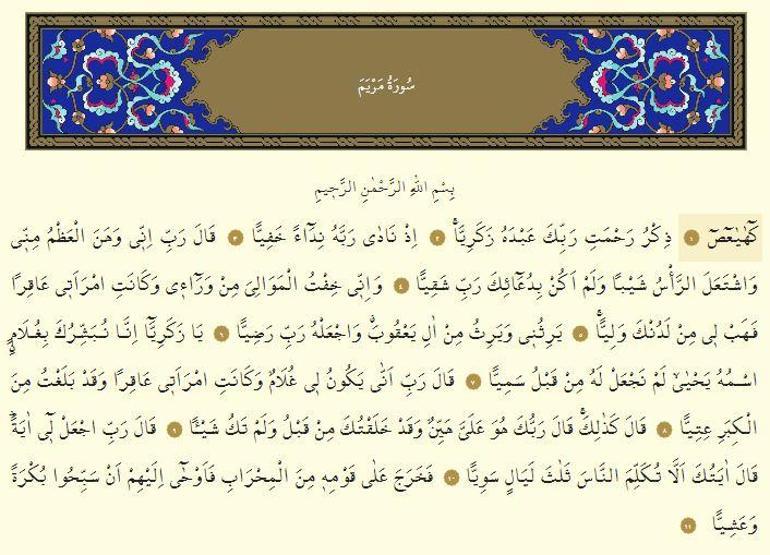 سُورَةُ مَرْيَمَ
بِسْمِ اللّٰهِ الرَّحْمٰنِ الرَّح۪يمِ
كٓهٰيٰعٓصٓ ١ ذِكْرُ رَحْمَتِ رَبِّكَ عَبْدَهُ زَكَرِيَّاۚ ٢ اِذْ نَادٰى رَبَّهُ نِدَٓاءً خَفِيًّا ٣ قَالَ رَبِّ اِنّ۪ي وَهَنَ الْعَظْمُ مِنّ۪ي
وَاشْتَعَلَ الرَّأْسُ شَيْبًا وَلَمْ اَكُنْ بِدُعَٓائِكَ رَبِّ شَقِيًّا ٤ وَاِنّ۪ي خِفْتُ الْمَوَالِيَ مِنْ وَرَٓاء۪ي وَكَانَتِ امْرَاَت۪ي عَاقِرًا
فَهَبْ ل۪ي مِنْ لَدُنْكَ وَلِيًّاۙ ٥ يَرِثُن۪ي وَيَرِثُ مِنْ اٰلِ يَعْقُوبَۗ وَاجْعَلْهُ رَبِّ رَضِيًّا ٦ يَا زَكَرِيَّٓا اِنَّا نُبَشِّرُكَ بِغُلَامٍۨ
اسْمُهُ يَحْيٰىۙ لَمْ نَجْعَلْ لَهُ مِنْ قَبْلُ سَمِيًّا ٧ قَالَ رَبِّ اَنّٰى يَكُونُ ل۪ي غُلَامٌ وَكَانَتِ امْرَاَت۪ي عَاقِرًا وَقَدْ بَلَغْتُ مِنَ
الْكِبَرِ عِتِيًّا ٨ قَالَ كَذٰلِكَۚ قَالَ رَبُّكَ هُوَ عَلَيَّ هَيِّنٌ وَقَدْ خَلَقْتُكَ مِنْ قَبْلُ وَلَمْ تَكُ شَيْـًٔا ٩ قَالَ رَبِّ اجْعَلْ ل۪ٓي اٰيَةًۜ
قَالَ اٰيَتُكَ اَلَّا تُكَلِّمَ النَّاسَ ثَلٰثَ لَيَالٍ سَوِيًّا ١٠ فَخَرَجَ عَلٰى قَوْمِه۪ مِنَ الْمِحْرَابِ فَاَوْحٰٓى اِلَيْهِمْ اَنْ سَبِّحُوا بُكْرَةً
وَعَشِيًّا ١١